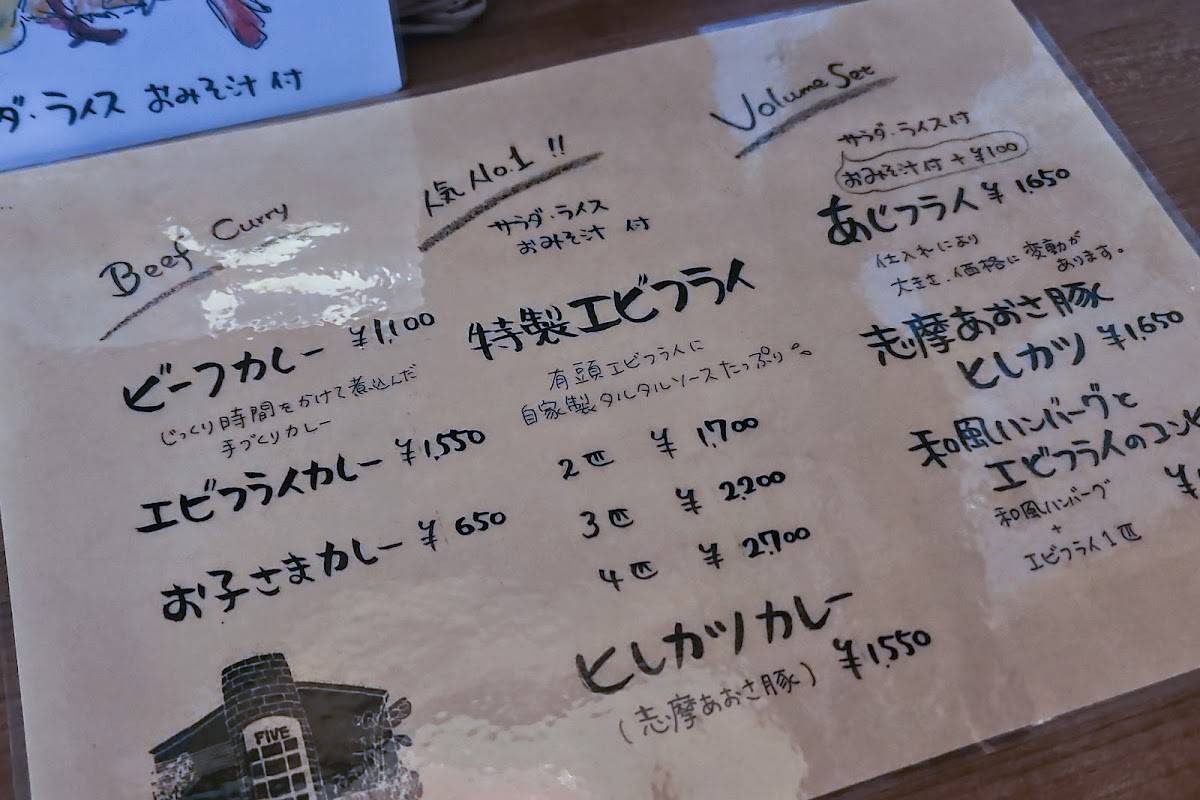 ダ・ライス おみそ汁 付
Beef Curry
ビーフカレー ¥1,100
じっくり時間をかけて煮込んだ
手づくりカレー
エビフライカレー ¥1,550
お子さまカレー ¥650
FIVE
人気 No.1 !!
サラダ・ライス
おみそ汁 付
特製エビフライ
有頭エビフライに
自家製タルタルソースたっぷり
2匹 ¥1,700
3匹 ¥2,200
4匹 ¥2,700
ヒレカツカレー ¥1,550
(志摩あおさ豚)
Volume Set
サラダ・ライス付
おみそ汁付+¥100
あじフライ ¥1,650
仕入れにより
大きさ、価格に変動が
あります。
志摩あおさ豚
ヒレカツ ¥1,650
和風ハンバーグと
エビフライのコンビ
¥
和風ハンバーグ
+
エビフライ1匹